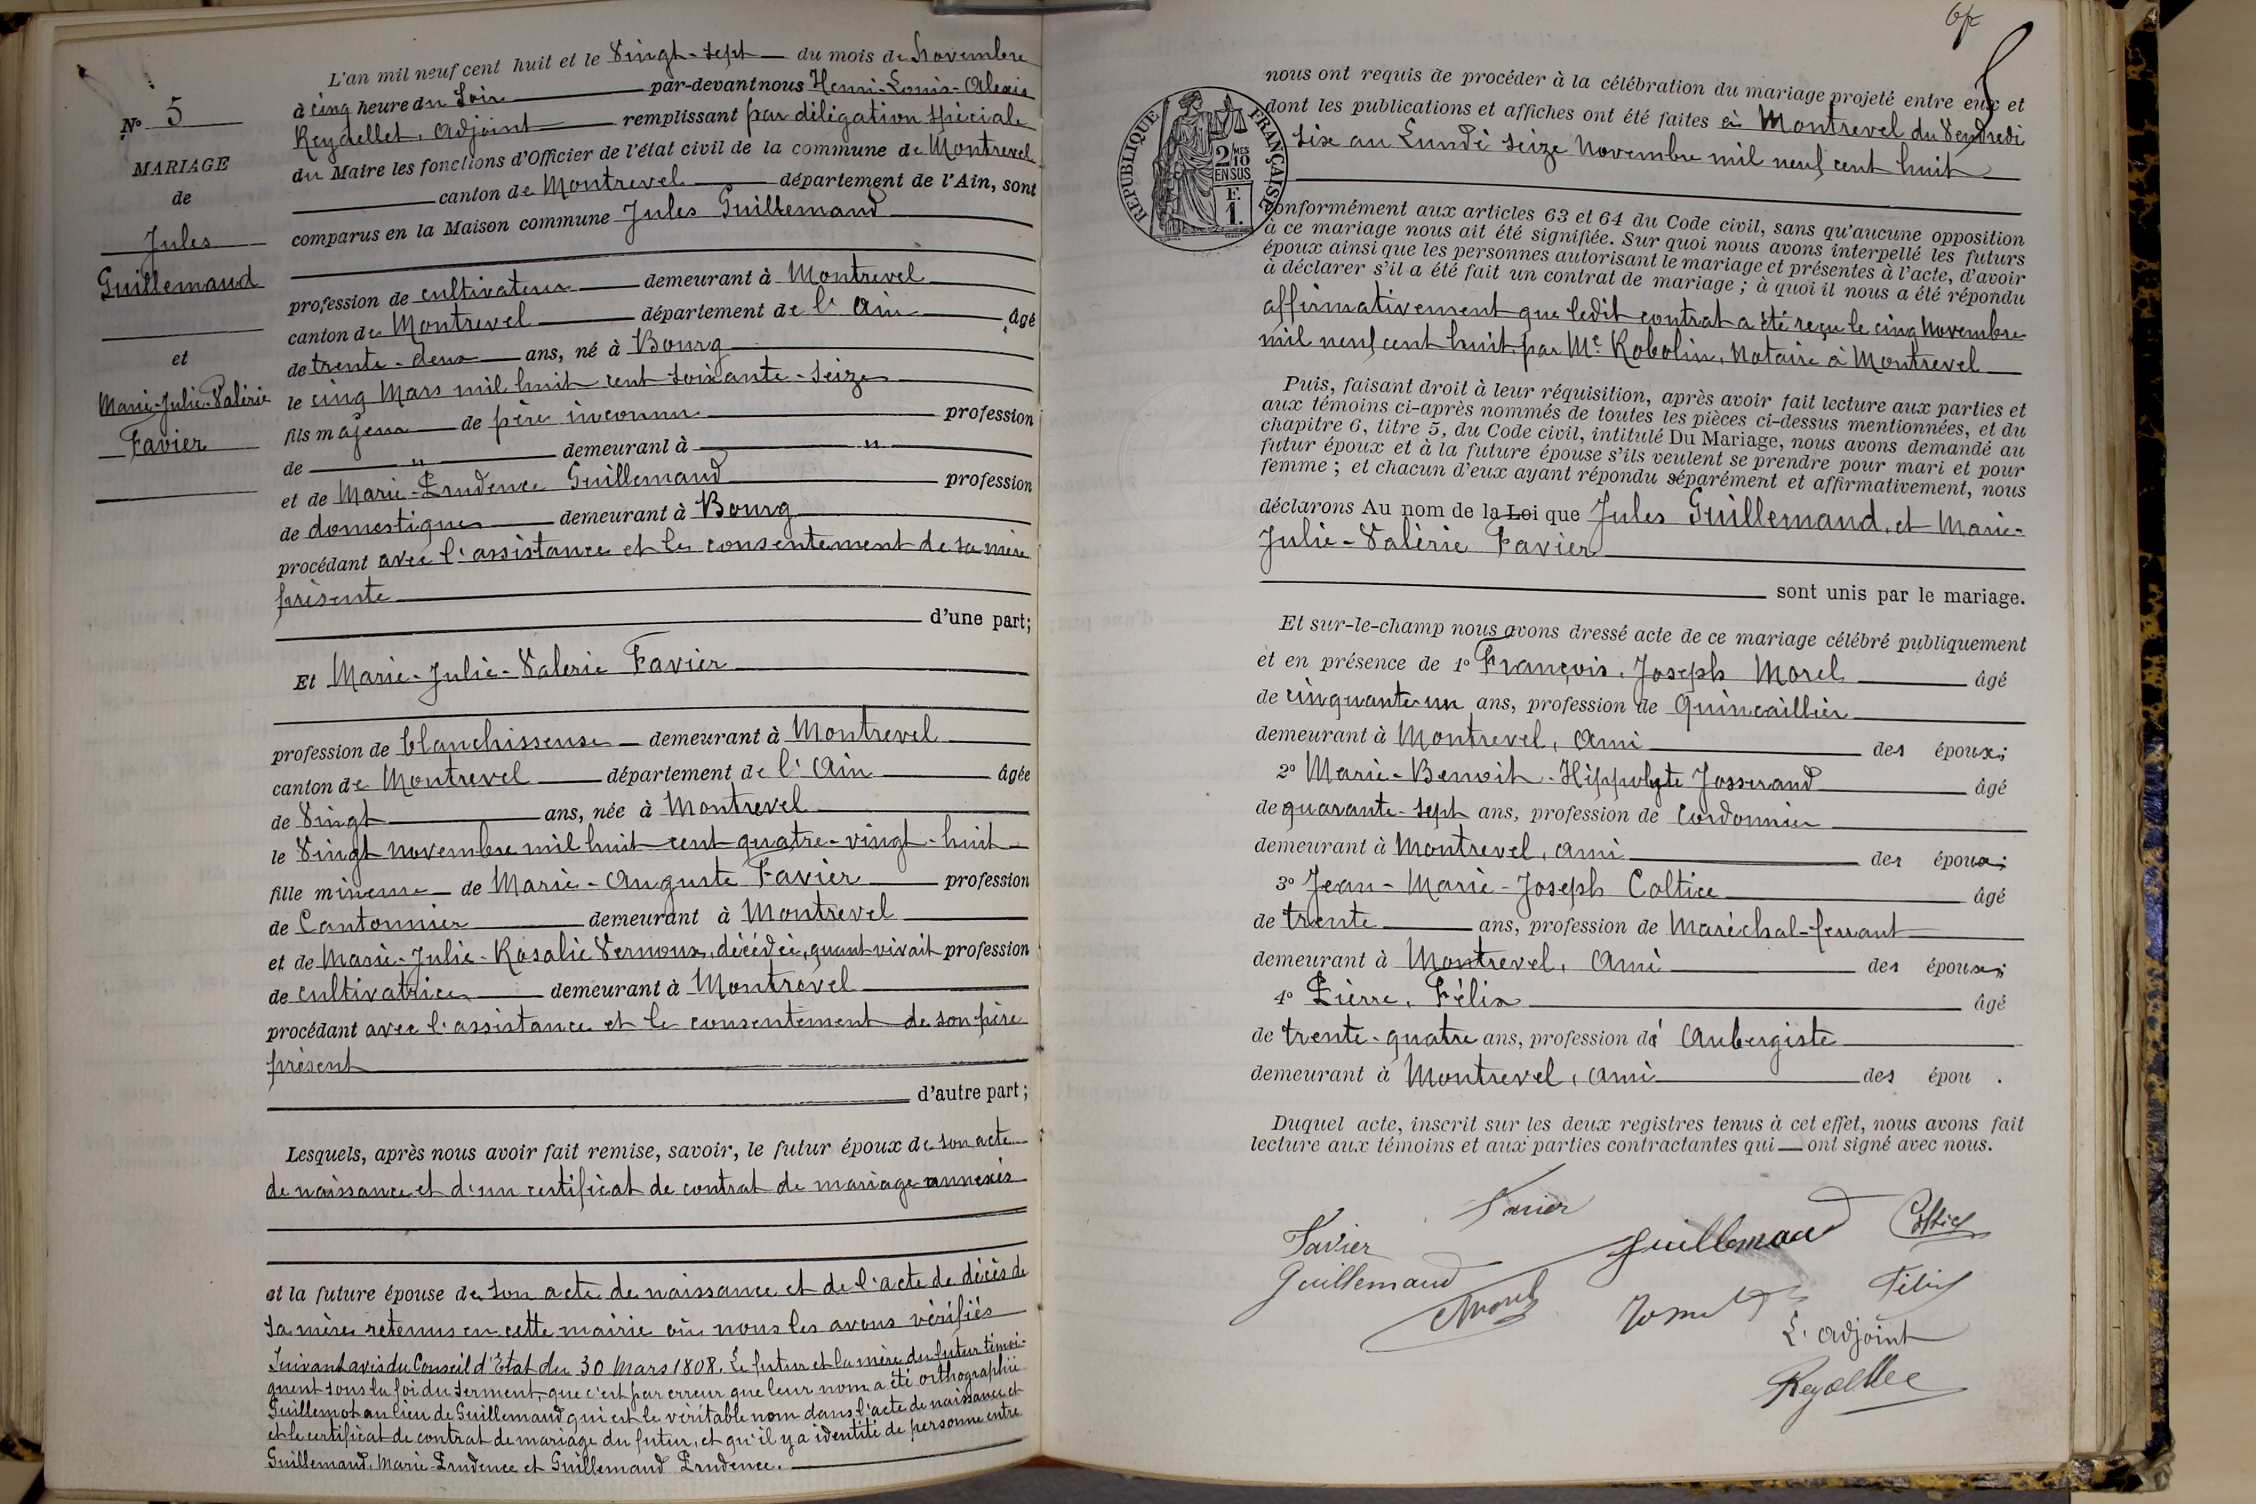 N° 5
MARIAGE
de
Jules
Guillemaud
et
Marie-Julie-Valérie
Favier
L'an mil neuf cent huit et le Vingt-sept du mois de Novembre
à cinq heure du Soir par-devant nous Henri-Louis-Alexis
Reydellet, Adjoint remplissant par délégation spéciale
du Maire les fonctions d'Officier de l'état civil de la commune de Montrevel
canton de Montrevel département de l'Ain, sont
comparus en la Maison commune Jules Guillemaud
profession de cultivateur demeurant à Montrevel
canton de Montrevel département de l'Ain âgé
de trente-deux ans, né à Bourg
le cinq Mars mil huit cent soixante-seize
fils majeur de père inconnu profession
de " demeurant à "
et de Marie-Prudence Guillemaud profession
de domestique demeurant à Bourg
procédant avec l'assistance et le consentement de sa mère
présente
d'une part;
Et Marie-Julie-Valerie Favier
profession de blanchisseuse demeurant à Montrevel
canton de Montrevel département de l'Ain âgée
de Vingt ans, née à Montrevel
le Vingt novembre mil huit cent quatre-vingt-huit
fille mineure de Marie-Auguste Favier profession
de Cantonnier demeurant à Montrevel
et de Marie-Julie-Rosalie Vernoux, décédée, quant vivait profession
de cultivatrice demeurant à Montrevel
procédant avec l'assistance et le consentement de son père
présent
d'autre part;
Lesquels, après nous avoir fait remise, savoir, le futur époux de son acte
de naissance et d'un certificat de contrat de mariage annexés
et la future épouse de son acte de naissance et de l'acte de décès de
sa mère retenus en cette mairie où nous les avons vérifiés
Suivant avis du Conseil d'Etat du 30 Mars 1808. Le futur et la mère du futur témoi-
gnent sous la foi du serment, que c'est par erreur que leur nom a été orthographié
Guillemot au lieu de Guillemaud qui est le véritable nom dans l'acte de naissance et
et le certificat de contrat de mariage du futur, et qu'il y a identité de personne entre
Guillemaud, Marie-Prudence et Guillemaud Prudence.
RÉPUBLIQUE FRANÇAISE
2 MES
10
EN SUS
F.
1.
nous ont requis de procéder à la célébration du mariage projeté entre eux et
dont les publications et affiches ont été faites à Montrevel du Vendredi
six au Lundi seize Novembre mil neuf cent huit
conformément aux articles 63 et 64 du Code civil, sans qu'aucune opposition
à ce mariage nous ait été signifiée. Sur quoi nous avons interpellé les futurs
époux ainsi que les personnes autorisant le mariage et présentes à l'acte, d'avoir
à déclarer s'il a été fait un contrat de mariage; à quoi il nous a été répondu
affirmativement que ledit contrat a été reçu le cinq Novembre
mil neuf cent huit, par Me. Robolin, Notaire à Montrevel
Puis, faisant droit à leur réquisition, après avoir fait lecture aux parties et
aux témoins ci-après nommés de toutes les pièces ci-dessus mentionnées, et du
chapitre 6, titre 5, du Code civil, intitulé Du Mariage, nous avons demandé au
futur époux et à la future épouse s'ils veulent se prendre pour mari et pour
femme; et chacun d'eux ayant répondu séparément et affirmativement, nous
déclarons Au nom de la Loi que Jules Guillemaud, et Marie-
Julie-Valérie Favier
sont unis par le mariage.
Et sur-le-champ nous avons dressé acte de ce mariage célébré publiquement
et en présence de 1° François, Joseph Morel âgé
de cinquante-un ans, profession de Quincaillier
demeurant à Montrevel, ami des époux;
2° Marie-Benoit-Hippolyte Josserand âgé
de quarante-sept ans, profession de Cordonnier
demeurant à Montrevel, ami des époux;
3° Jean-Marie-Joseph Coltice âgé
de trente ans, profession de Maréchal-ferrant
demeurant à Montrevel, Ami des époux;
4° Pierre, Félix âgé
de trente-quatre ans, profession d' Aubergiste
demeurant à Montrevel, ami des épou .
Duquel acte, inscrit sur les deux registres tenus à cet effet, nous avons fait
lecture aux témoins et aux parties contractantes qui ont signé avec nous.
Favier
Favier Guillemaud Coltice
Guillemaud Morel Félix
L'adjoint
Reydellet